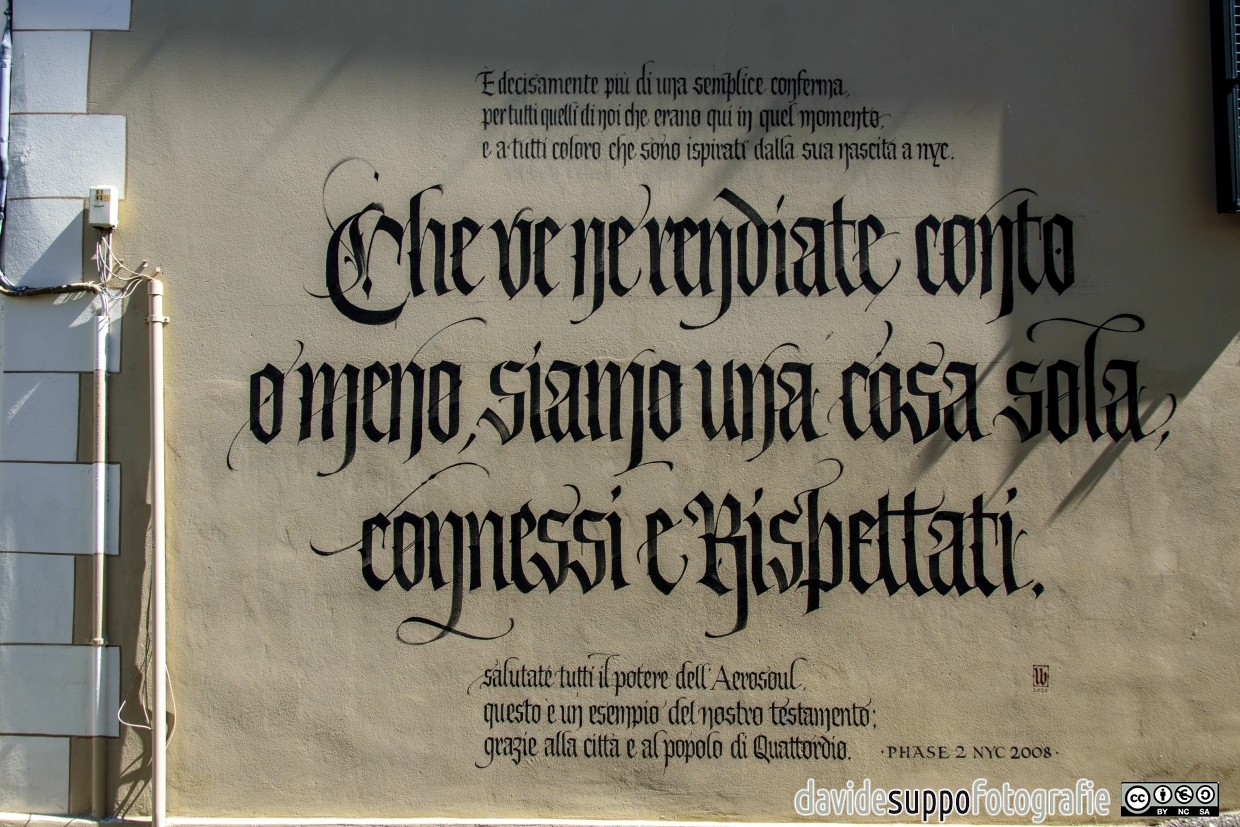 È decisamente più di una semplice conferma,
per tutti quelli di noi che erano qui in quel momento,
e a tutti coloro che sono ispirati dalla sua nascita a nyc.
Che ve ne rendiate conto
o meno, siamo una cosa sola,
connessi e Rispettati.
salutate tutti il potere dell'Aerosoul,
questo è un esempio del nostro testamento;
grazie alla città e al popolo di Quattordio.
·PHASE 2 NYC 2008·
davidesuppofotografie
cc BY NC SA